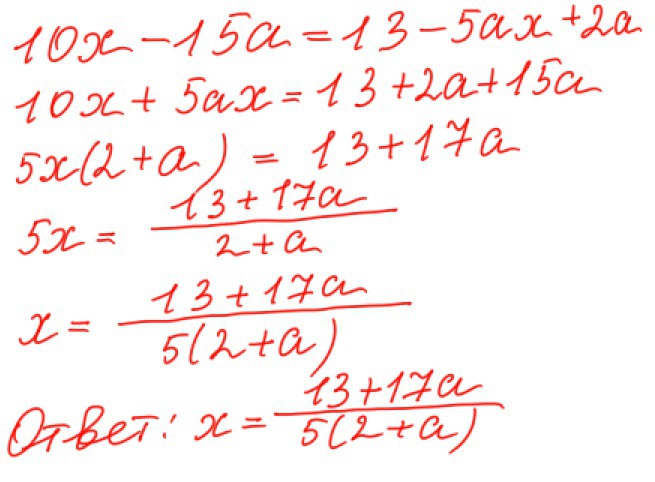 10x - 15a = 13 - 5ax + 2a
10x + 5ax = 13 + 2a + 15a
5x(2 + a) = 13 + 17a
5x = \frac{13 + 17a}{2 + a}
x = \frac{13 + 17a}{5(2 + a)}
Ответ: x = \frac{13 + 17a}{5(2 + a)}